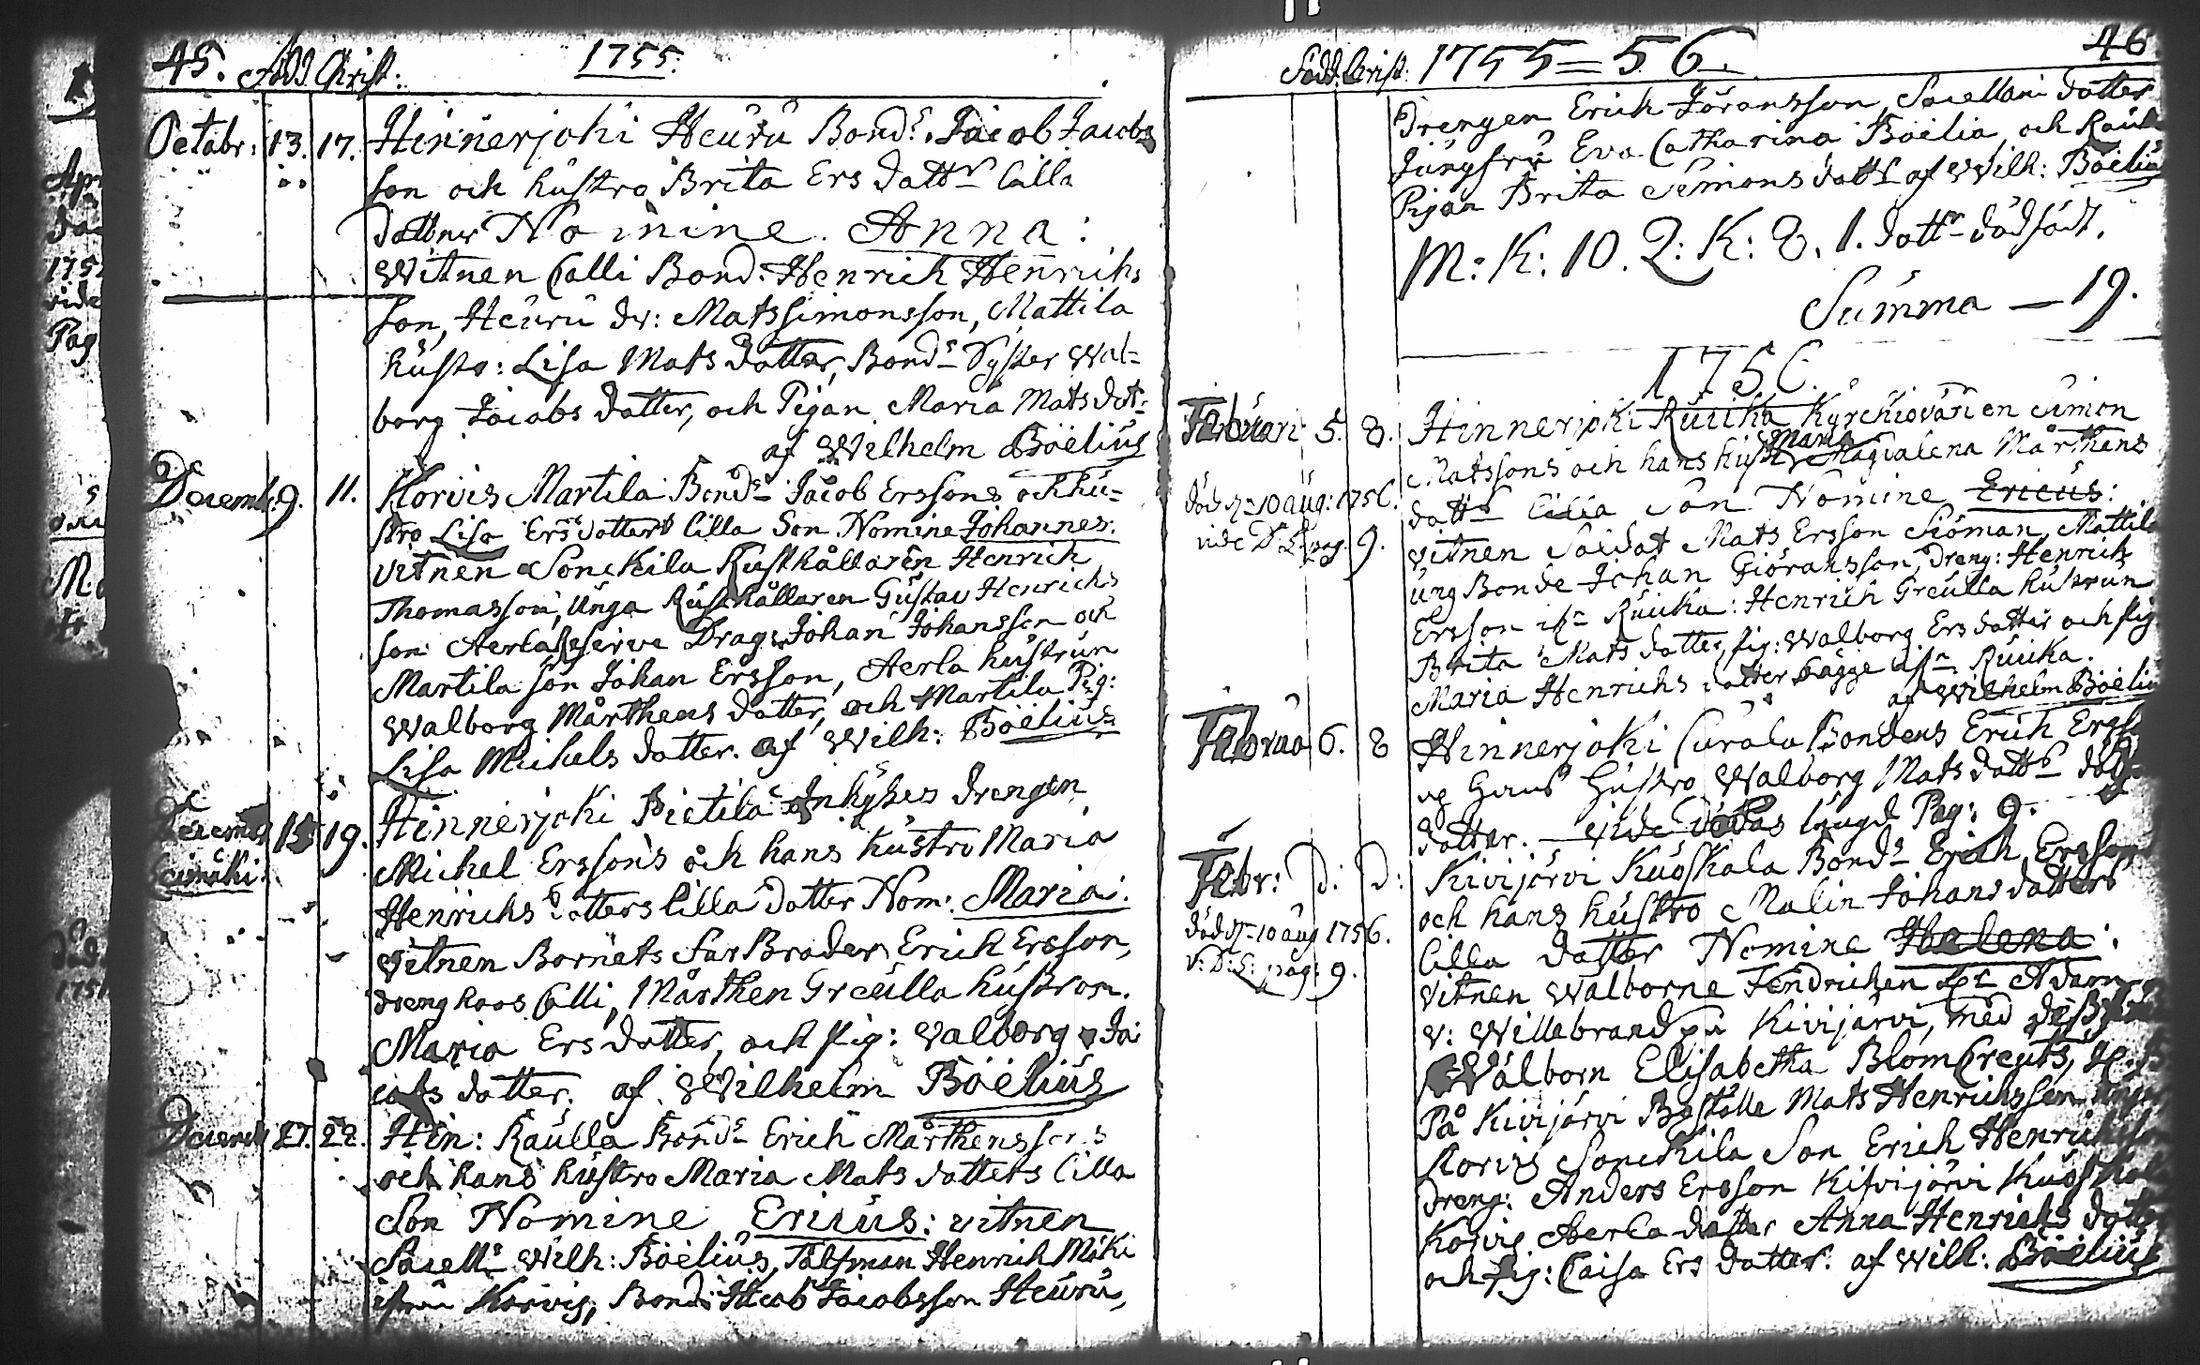 45. Född Christ: 1755.
Octobr: 13. 17. Hinnerjoki Heuru Bonds. Jacob Jacobs
son och hustro Brita Ers dattr lilla
datter Nomine. Anna:
Witnen Calli Bond: Henrich Henrichs
son, Heuru dr: Mats Simonsson, Mattila
hustr: Lisa Mats datter, Bonds Syster Wal=
borg Jacobs datter, och Pijan Maria Mats dot=
af Wilhelm Boëlius
Decemb: 9. 11. Korvis Martila Bonds Jacob Erssons och hu=
stro Lisa Ers datters lilla Son Nomine Johannes:
vitnen Sonckila Rusthållaren Henrich
Thomasson, Unga Rusthållaren Gustav Henrichs
son Aerla Reserve Drag: Johan Johansson och
Martila son Johan Ersson, Aerla hustrun
Walborg Mårthens datter, och Martila Pig:
Lisa Michels datter. af Wilh: Boëlius
Decemb 15 19. Hinnerjoki Pietila Inhyses drengen
Michel Erssons och hans hustro Maria
Henrichs datters lilla datter Nom: Maria:
Vitnen Barnets Far Broder Erich Ersson,
dreng hoos Calli, Mårthen Greulla hustron.
Maria Ers datter, och pig: Valborg Ja:
cobs datter. af Wilhelm Boëlius
Decemb 27. 28. Hin: Raulla Bonds Erich Mårthenssons
och hans hustro Maria Mats datters lilla
Son Nomine Ericus: vitnen
Sacells Wilh: Boëlius, Tålfman Henrich Mäki
ifrån Korvis, Bond: Jacob Jacobsson Heuru,
Född. Christ: 1755=56. 46
Drengen Erich Jöransson, Sacellani datter
Jungfru Eva Catharina Boëlia, och
Pijan Brita Simons dattr af Wilh: Boëlius
M: K: 10. Q: K: 8. 1. dattr dödfödt.
Summa — 19.
1756.
Februari 5. 8. Hinnerjoki Ruuika Kyrckiovärien Simon
Matssons och hans hust Maria Magdalena Mårthens
dattrs lilla son Nomine Ericus:
död d. 10 aug: 1756.
vide D: L: pag. 9.
vitnen Soldat Mats Ersson Siöman, Mattila
ung Bonde Johan Giöransson, Dreng: Henrich
Ersson ifn Ruuika: Henrich Greulla hustrun
Brita Mats datter, pig: Walborg Ers datter och pig
Maria Henrichs datter bägge ifn Ruuika.
af Wilhelm Boëlius
Februa 6. 8 Hinnerjoki Curala Bondens Erich Erss
og hans Hustro Walborg Mats dattr
datter. — vide dödas längd Pag: 9.
Febr: D: D: Kivijärvi Kuoskala Bonds Erich Ersson
och hans hustro Malin Johans datters
lilla datter Nomine Helena:
död d. 10 aug 1756.
v: D: L: pag: 9.
vitnen Walborne Fendrichen Hr Adam
v: Willebrand på Kivijärvi, med
Wälborn Elisabetha BlomCreutz,
På Kivijärvi Boställe Mats Henrichsson
Korvis Sonckila Son Erich Henrichsson
dreng: Anders Ersson Kifvijärvi Kuoskala
Korvis Aerla datter Anna Henrichs datter
och pig: Caisa Ers datter: af Wilh: Boëlius